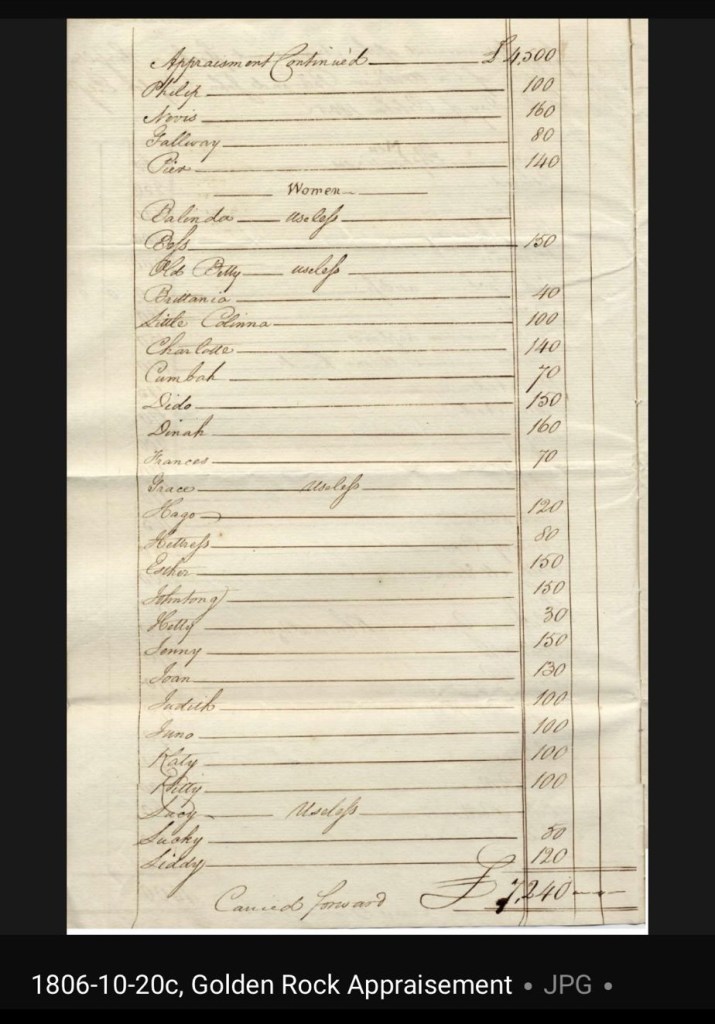 Appraisment Continued £4,500
Philip 100
Nevis 160
Gallway 80
Pier 140
Women
Balinda useless
Bess 150
Old Betty useless
Brittania 40
Little Colinna 100
Charlotte 140
Cumbah 70
Dido 150
Dinah 160
Frances 70
Grace useless
Hago 120
Hettress 80
Esther 150
150
Hetty 30
Jenny 150
Joan 130
Judith 100
Juno 100
Katy 100
Kitty 100
Lucy Useless
Sucky 50
Liddy 120
Carried forward £7,240
1806-10-20c, Golden Rock Appraisement • JPG •